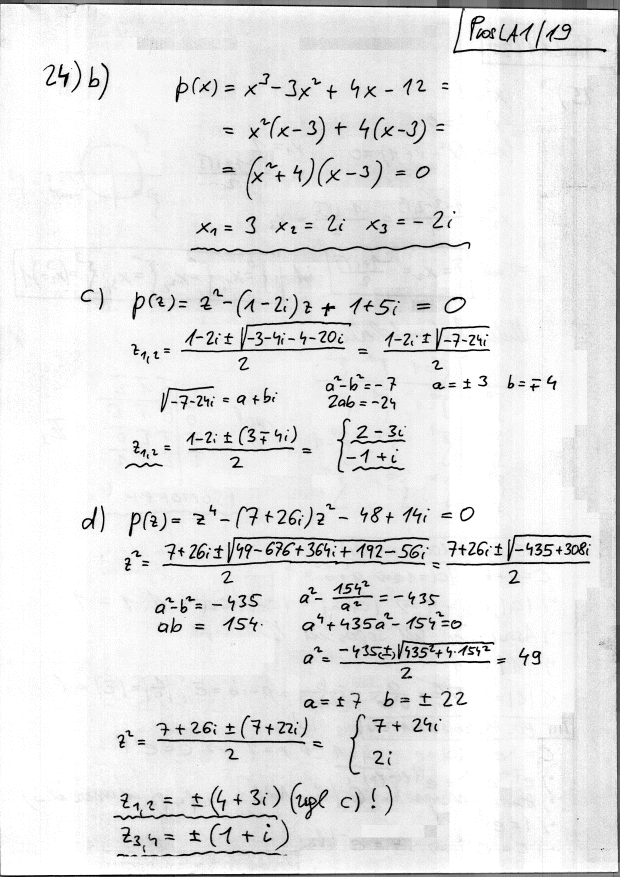 ProsLA1/19
24) b) p(x) = x³ - 3x² + 4x - 12 =
= x²(x-3) + 4(x-3) =
= (x²+4)(x-3) = 0
x₁ = 3 x₂ = 2i x₃ = -2i
c) p(z) = z² - (1-2i)z + 1+5i = 0
z₁,₂ = (1-2i ± √(-3-4i-4-20i))/2 = (1-2i ± √(-7-24i))/2
√(-7-24i) = a+bi a²-b² = -7 a = ±3 b = ∓4
2ab = -24
z₁,₂ = (1-2i ± (3∓4i))/2 = { 2-3i
-1+i
d) p(z) = z⁴ - (7+26i)z² - 48 + 14i = 0
z² = (7+26i ± √(49-676+364i+192-56i))/2 = (7+26i ± √(-435+308i))/2
a²-b² = -435 a² - 154²/a² = -435
ab = 154. a⁴ + 435a² - 154² = 0
a² = (-435(±)√(435²+4·154²))/2 = 49
a = ±7 b = ±22
z² = (7+26i ± (7+22i))/2 = { 7+24i
2i
z₁,₂ = ±(4+3i) (vgl c)!)
z₃,₄ = ±(1+i)